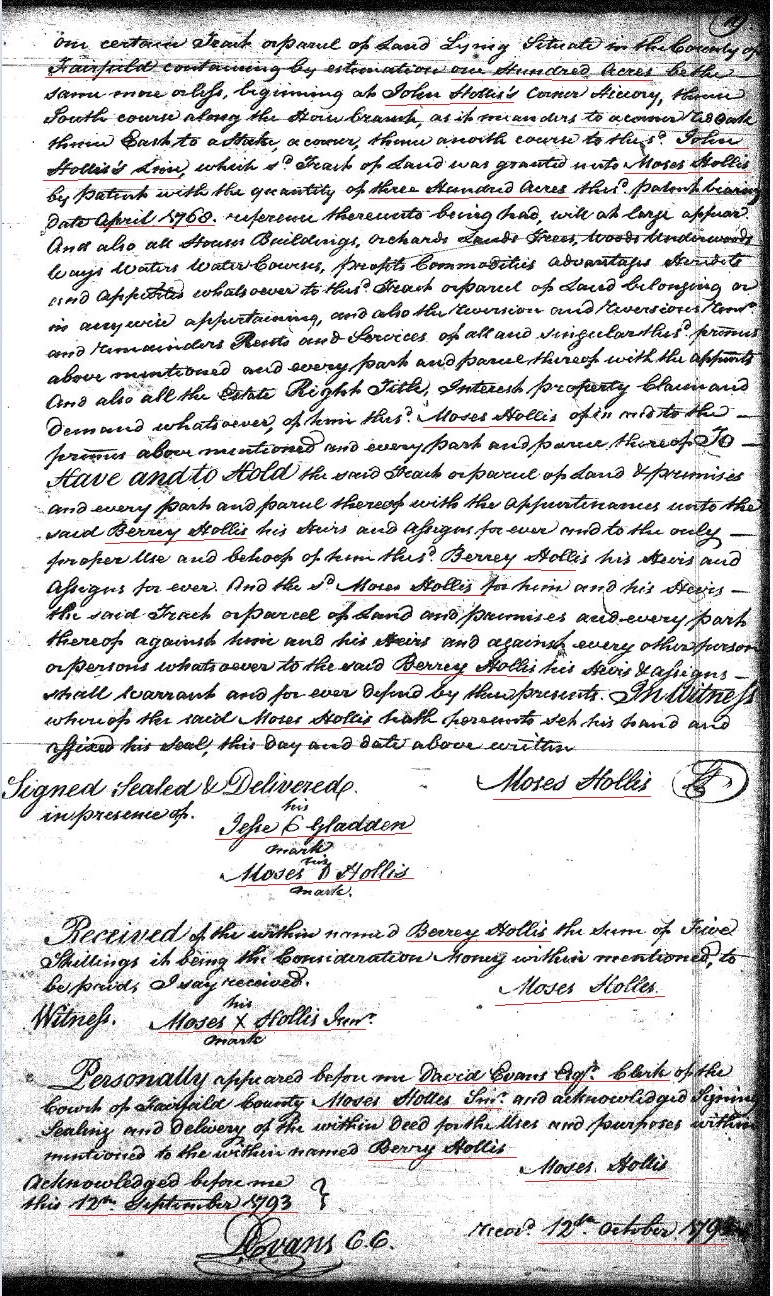 one certain Tract or parcel of Land Lying Situate in the County of
Fairfield containing by estimation one Hundred Acres be the
same more or less, beginning at John Hollis's Corner Hicory, thence
South course along the branch, as it meanders to a corner Red Oak
thence East to a Stake, a corner, thence a north course to the sd. John
Hollis's Line, which sd. Tract of Land was granted unto Moses Hollis
by Patent with the quantity of three Hundred Acres the sd. Patent bearing
date April 1768. reference thereunto being had, will at large appear.
And also all Houses Buildings, orchards Lands Trees, Woods Underwoods
Ways Waters Water Courses, profits Commodities advantages Heredits
and Appurts whatsoever to the sd. Tract or parcel of Land belonging or
in any wise appertaining, and also the reversion and reversions
and remainders Rents and Services of all and singular the sd. premes
above mentioned and every part and parcel thereof with the appurts
And also all the Estate Right Title, Interest property Claim and
Demand whatsoever, of him the sd. Moses Hollis of in and to the
premes above mentioned and every part and parcel thereof To
Have and to Hold the said Tract or parcel of Land & premises
and every part and parcel thereof with the appurtenances unto the
said Berrey Hollis his Heirs and Assigns for ever and to the only
proper Use and behoof of him the sd. Berrey Hollis his Heirs and
Assigns for ever. And the sd. Moses Hollis for him and his Heirs
the said Tract or parcel of Land and premises and every part
thereof against him and his Heirs and against every other person
or persons whatsoever to the said Berrey Hollis his Heirs & assigns
shall warrant and for ever defend by these presents. In Witness
where of the said Moses Hollis hath hereunto set his hand and
affixed his Seal, this day and date above written
Signed Sealed & Delivered. Moses Hollis
in presence of.
his
Jesse Gladden
mark
his
Moses Hollis
mark.
Received of the within named Berrey Hollis the sum of Five
Shillings it being the Consideration Money within mentioned, to
be paid, I say received. Moses Hollis.
his
Witness. Moses X Hollis Junr.
mark
Personally appeared before me David Evans Esqr. Clerk of the
Court of Fairfield County Moses Holles Snr. and acknowledged Signing
Sealing and delivery of the within Deed for the Uses and purposes within
mentioned to the within named Berry Hollis
Moses Hollis
Acknowledged before me
this 12th September 1793
DEvans C.C. Recd. 12th October 179